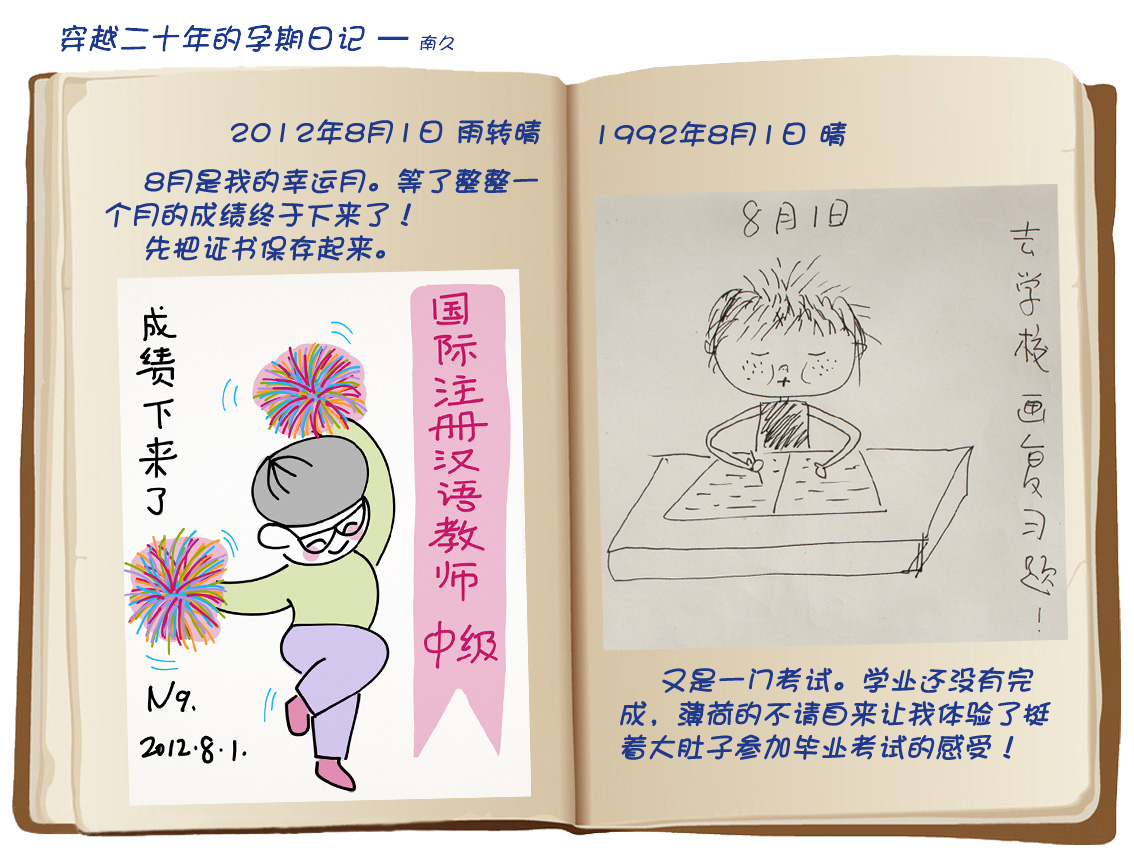 穿越二十年的孕期日记 — 南久
2012年8月1日 雨转晴
8月是我的幸运月。等了整整一
个月的成绩终于下来了！
先把证书保存起来。
成绩下来了
国际注册汉语教师 中级
N9.
2012.8.1.
1992年8月1日 晴
8月1日
去学校画复习题！
又是一门考试。学业还没有完
成，薄荷的不请自来让我体验了挺
着大肚子参加毕业考试的感受！